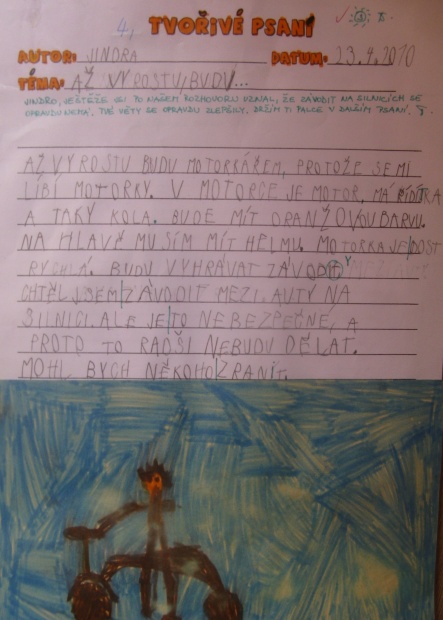 4.
TVOŘIVÉ PSANÍ
AUTOR: JINDRA DATUM: 23.4.2010
TÉMA: AŽ VYROSTU, BUDU...
JINDRO, JEŠTĚŽE JSI PO NAŠEM ROZHOVORU UZNAL, ŽE ZÁVODIT NA SILNICÍCH SE
OPRAVDU NEMÁ. TVÉ VĚTY SE OPRAVDU ZLEPŠILY. DRŽÍM TI PALCE V DALŠÍM PSANÍ.
AŽ VYROSTU BUDU MOTORKÁŘEM, PROTOŽE SE MI
LÍBÍ MOTORKY. V MOTORCE JE MOTOR, MÁ ŘÍDÍTRA
A TAKY KOLA. BUDE MÍT ORANŽOVOU BARVU.
NA HLAVĚ MUSÍM MÍT HELMU. MOTORKA JE DOST
RYCHLÁ. BUDU VYHRÁVAT ZÁVODY
CHTĚL JSEM ZÁVODIT MEZI AUTY NA
SILNICI. ALE JE TO NEBEZPEČNÉ, A
PROTO TO RADŠI NEBUDU DĚLAT.
MOHL BYCH NĚKOHO ZRANIT.